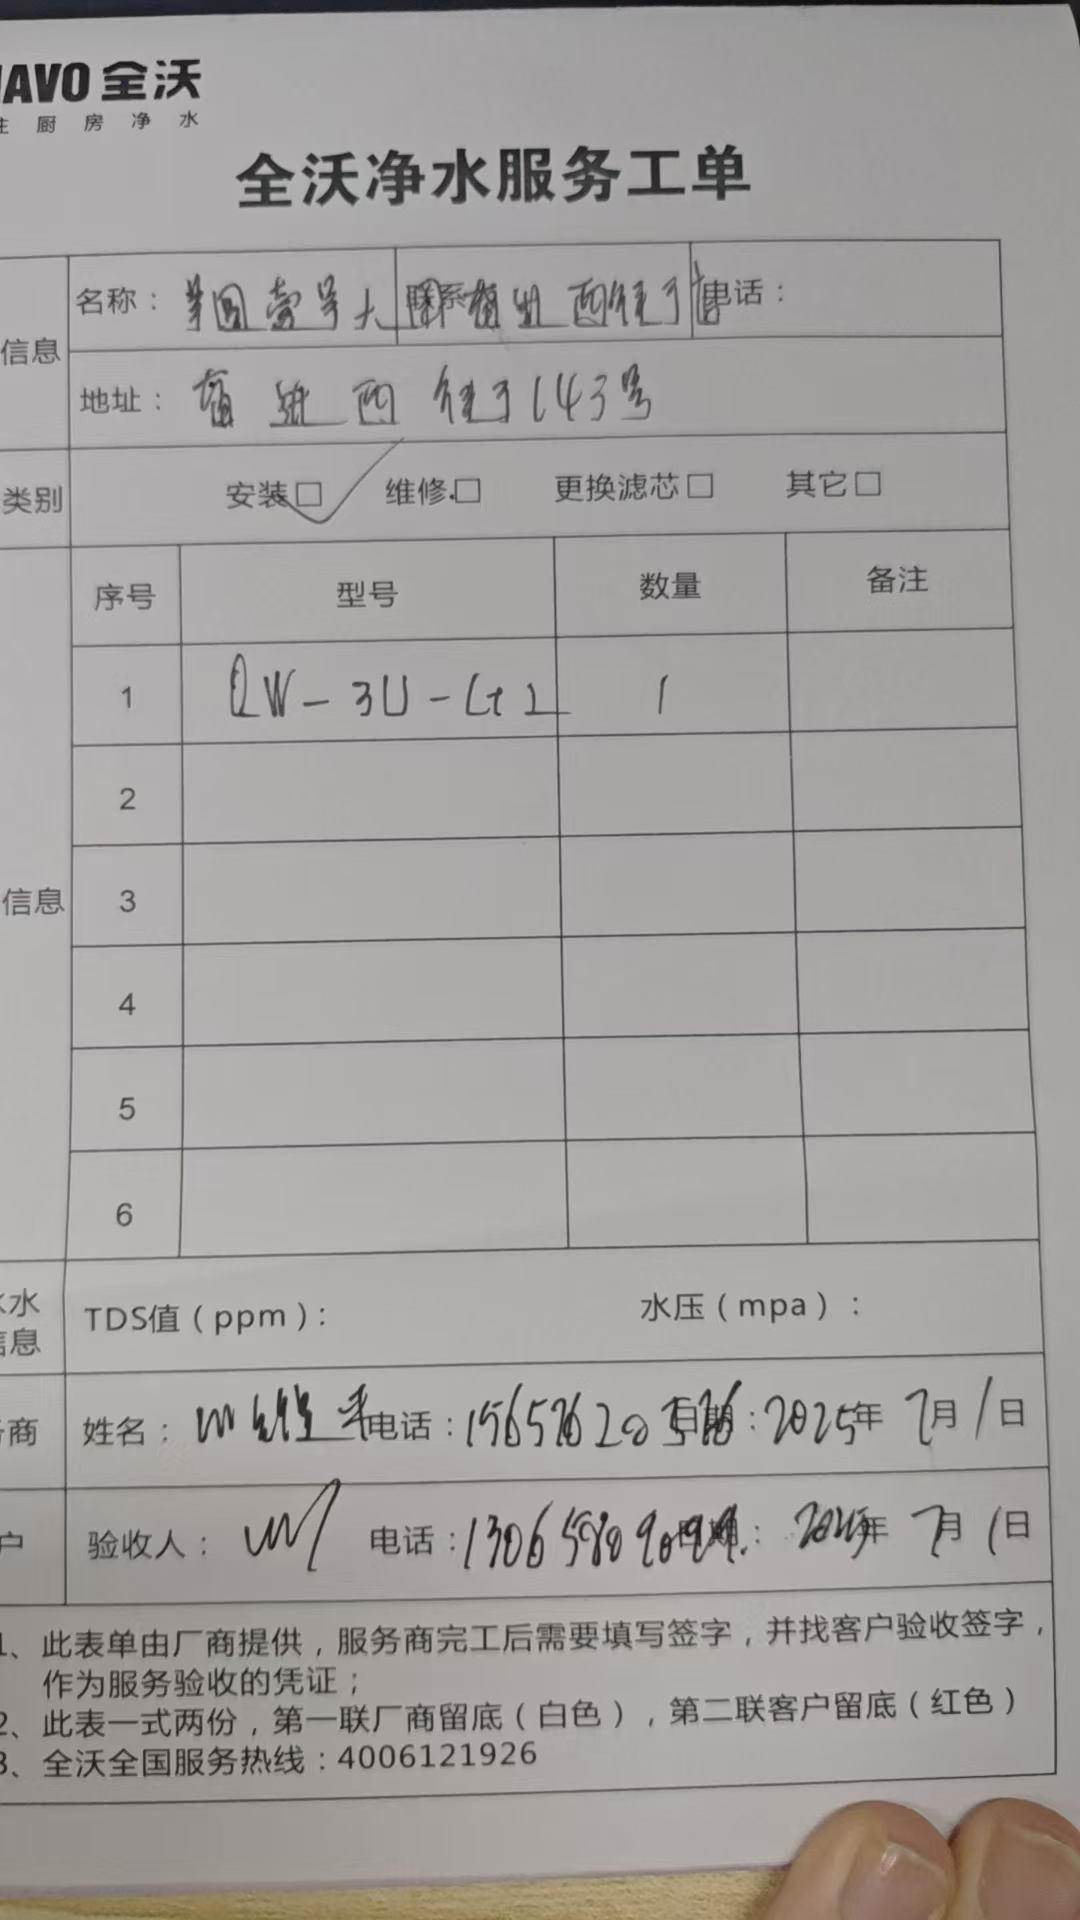 AVO 全沃
厨房净水
全沃净水服务工单
名称： 壹号大 联系 西 电话：
信息
地址： 西 143号
类别 安装□ 维修□ 更换滤芯□ 其它□
序号 型号 数量 备注
1 QW-3U-G2 1
2
3
信息
4
5
6
水 TDS值（ppm）： 水压（mpa）：
信息
商 姓名： 电话： 日期：2025年 7月1日
户 验收人： 电话：13065809099. 日期： 2025年 7月1日
1、此表单由厂商提供，服务商完工后需要填写签字，并找客户验收签字，
作为服务验收的凭证；
2、此表一式两份，第一联厂商留底（白色），第二联客户留底（红色）
3、全沃全国服务热线：4006121926